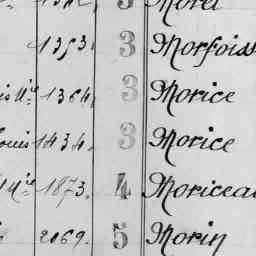 3 Morel
1353. 3 Morfoiss
is Mie 1364. 3 Morice
ouis 1434. 3 Morice
Mie 1873. 4 Moriceau
2069. 5 Morin